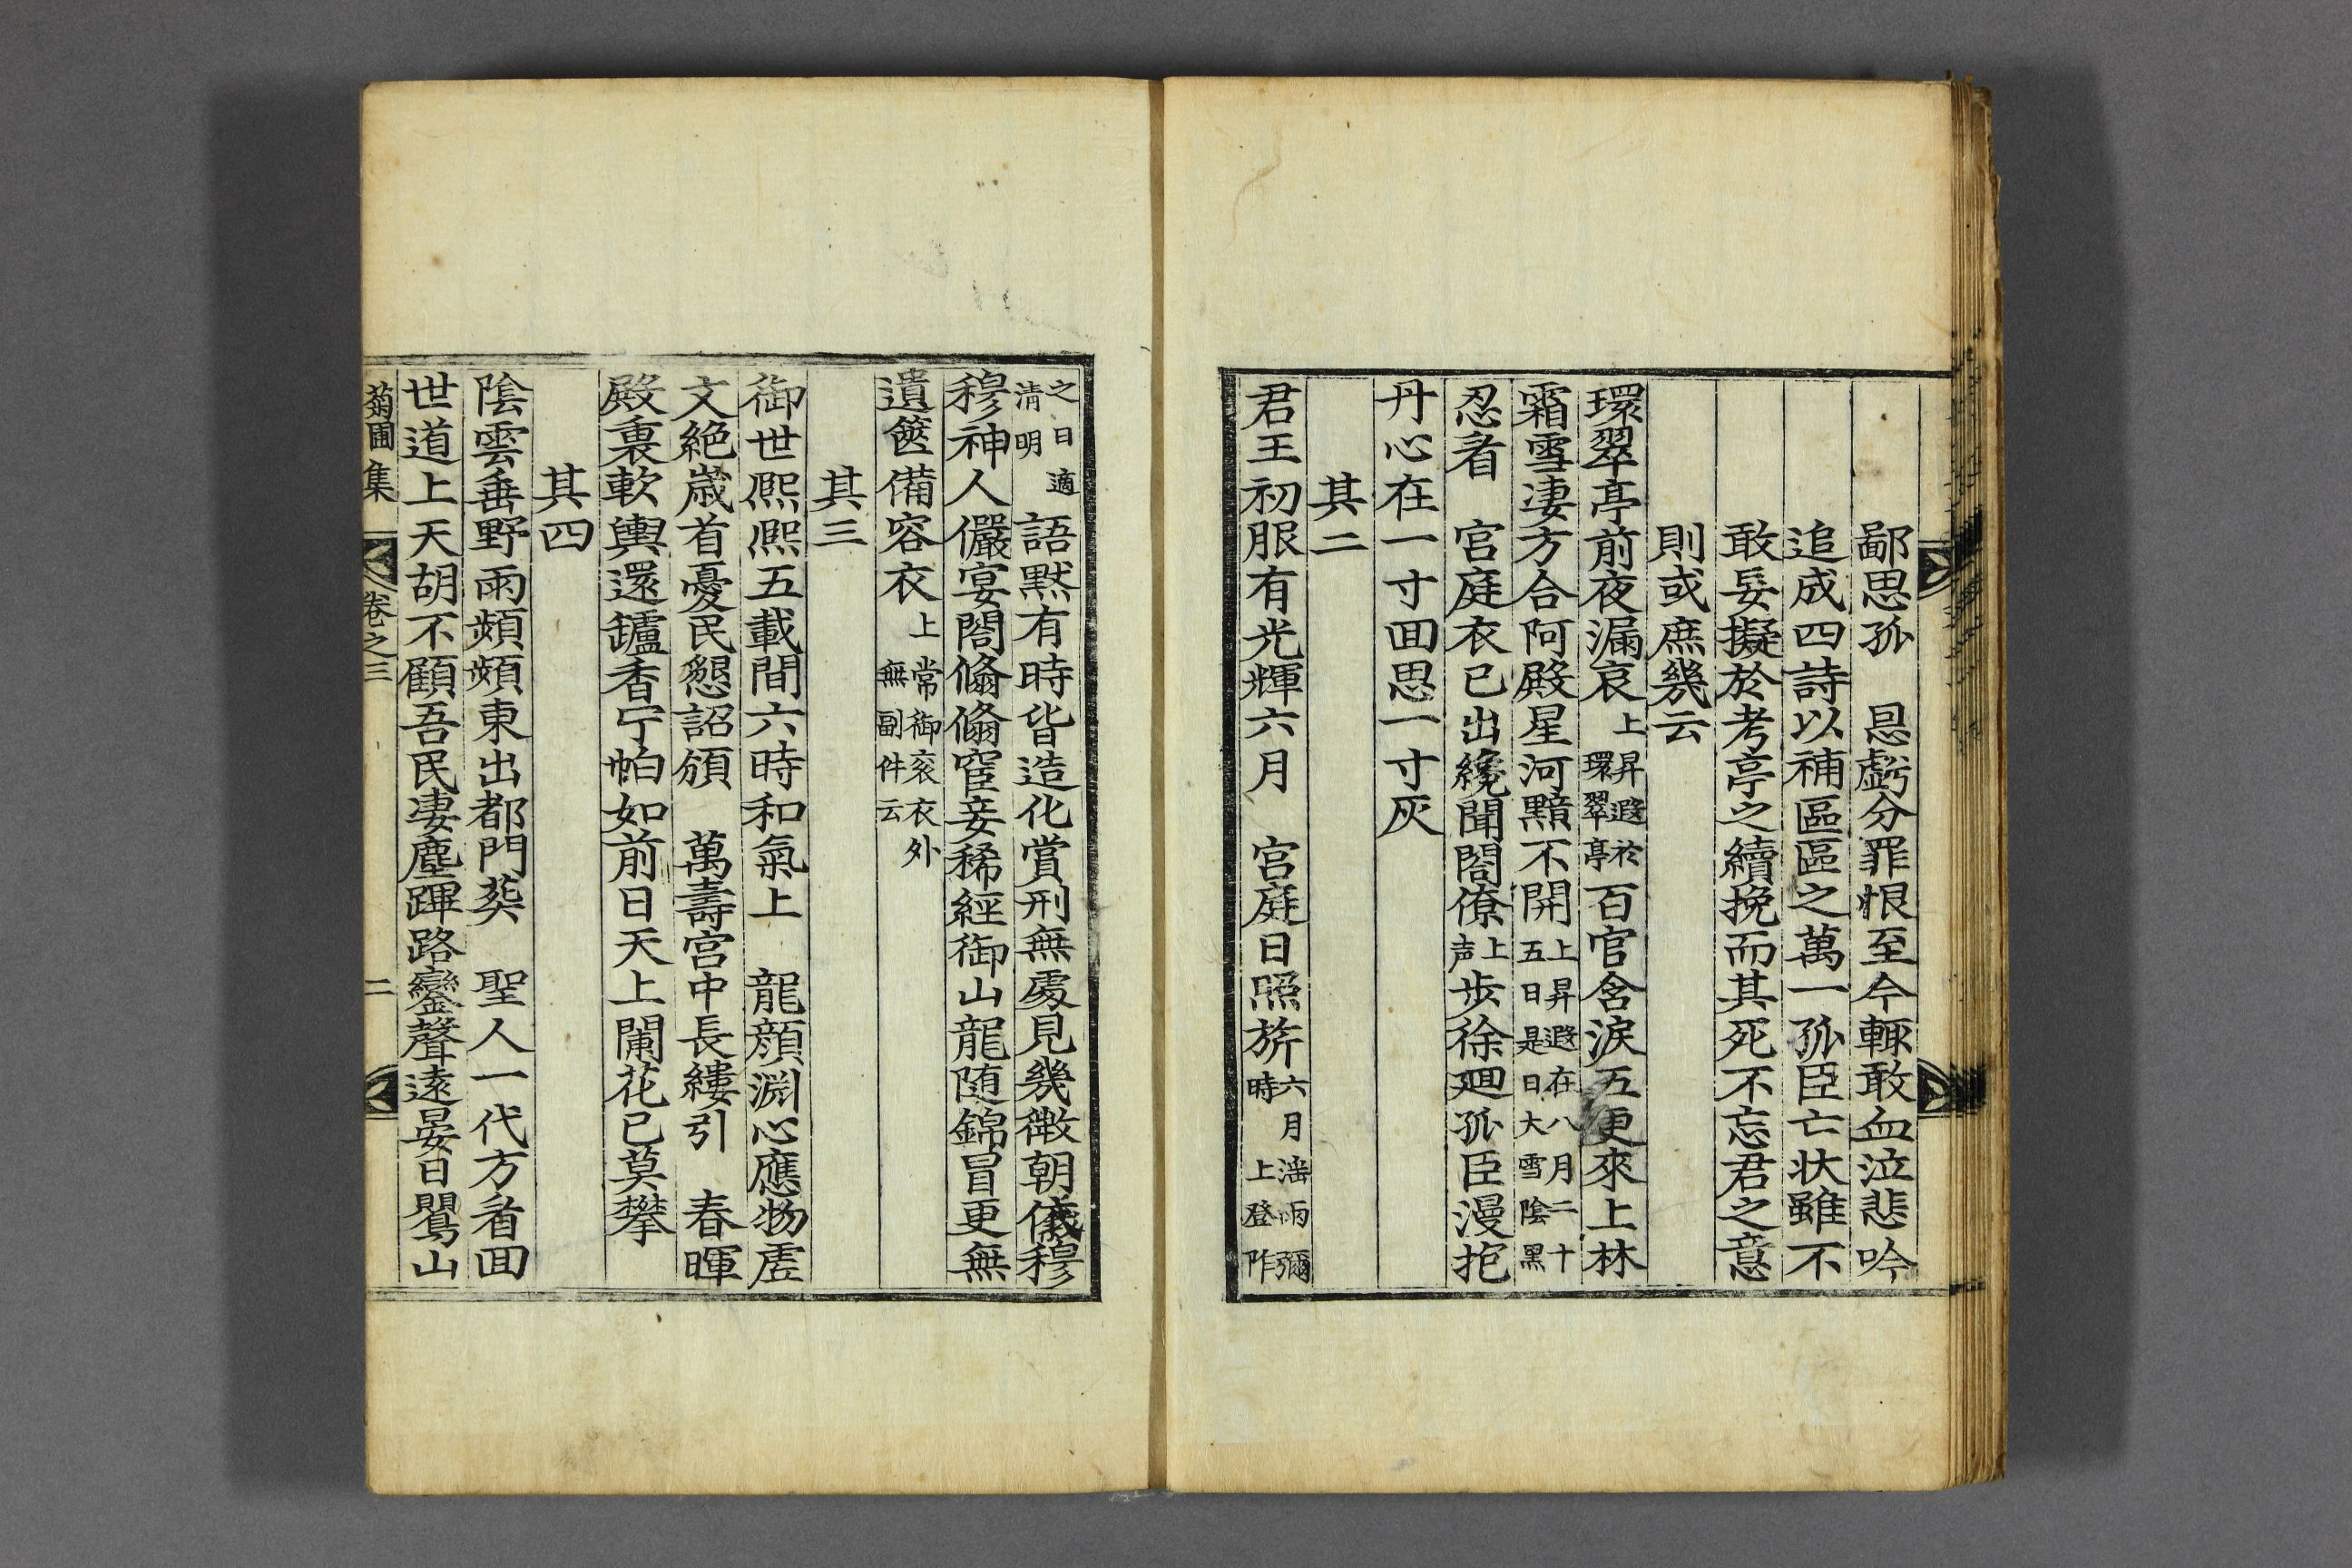 鄙思孤　恳虧分罪恨至今輙敢血泣悲吟
追成四詩以補區區之萬一孤臣亡状雖不
敢妄擬於考亭之續挽而其死不忘君之意
則或庶幾云
環翠亭前夜漏哀上昇遐於環翠亭百官含淚五更來上林
霜雪凄方合阿殿星河黯不開上昇遐在八月二十五日是日大雪陰黑
忍看　宮庭衣已出纔聞閤僚上声步徐廻孤臣漫抱
丹心在一寸囬思一寸灰
其二
君王初服有光輝六月　宮庭日照旂六月淫雨彌時上登阼
之日適清明語默有時皆造化賞刑無處見幾微朝儀穆
穆神人儼宴閤翛翛宦妾稀經御山龍随錦冒更無
遺篋備容衣上常御衮衣外無副件云
其三
御世熈熈五載間六時和氣上　龍顔淵心應物虛
文絶歳首憂民懇詔頒　萬壽宮中長縷引　春暉
殿裏軟輿還鑪香宁帕如前日天上闌花已莫攀
其四
陰雲垂野雨頻頻東出都門葬　聖人一代方看囬
世道上天胡不顧吾民凄塵蹕路鑾聲遠晏日鸎山
菊圃集　卷之三　二